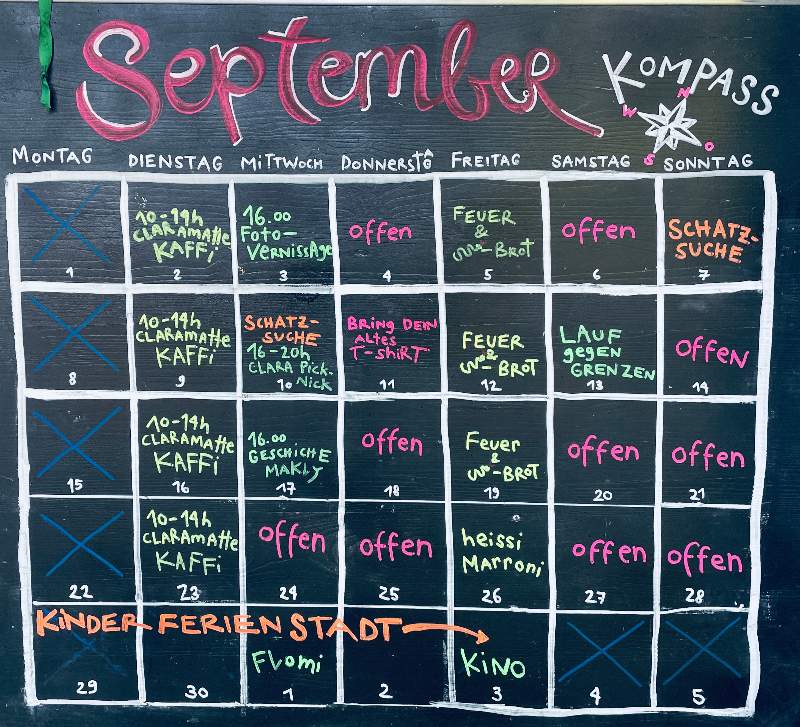 September
KOMPASS
N
W
O
S
MONTAG DIENSTAG MITTWOCH DONNERSTG FREITAG SAMSTAG SONNTAG
1
10-14h
CLARAMATTE
KAFFi
2
16.00
FOTO-
VERNISSAGE
3
offen
4
FEUER
&
-BROT
5
offen
6
SCHATZ-
SUCHE
7
8
10-14h
CLARAMATTE
KAFFi
9
SCHATZ-
SUCHE
16-20h
CLARA Pick-
Nick
10
BRING DEIN
ALTES
T-SHIRT
11
FEUER
&
-BROT
12
LAUF
gegen
GRENZEN
13
OFFEN
14
15
10-14h
CLARAMATTE
KAFFi
16
16.00
GESCHICHTE
MAKLY
17
offen
18
Feuer
&
-BROT
19
offen
20
offen
21
22
10-14h
CLARAMATTE
KAFFi
23
offen
24
offen
25
heissi
Marroni
26
offen
27
offen
28
KINDER FERIENSTADT
29
30
Flomi
1
2
KiNO
3
4
5